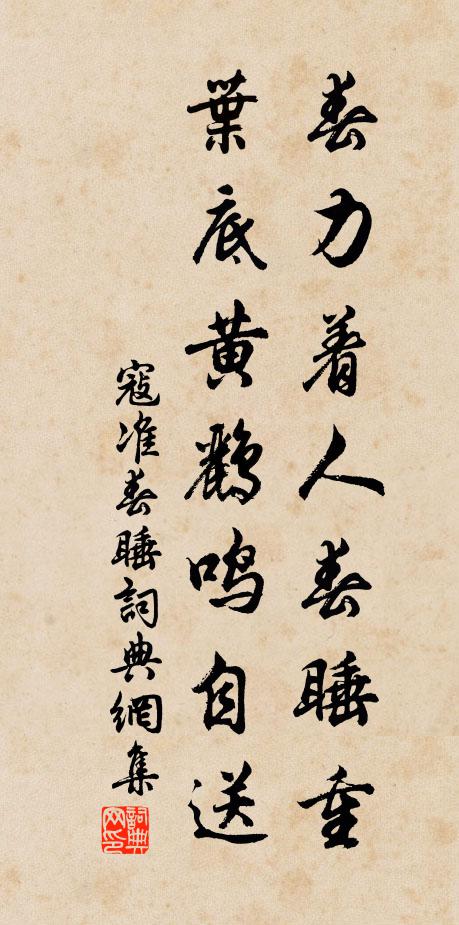 春力着人春睡重
葉底黄鸝鳴自送
寇准春睡詞典網集
詞典
网印